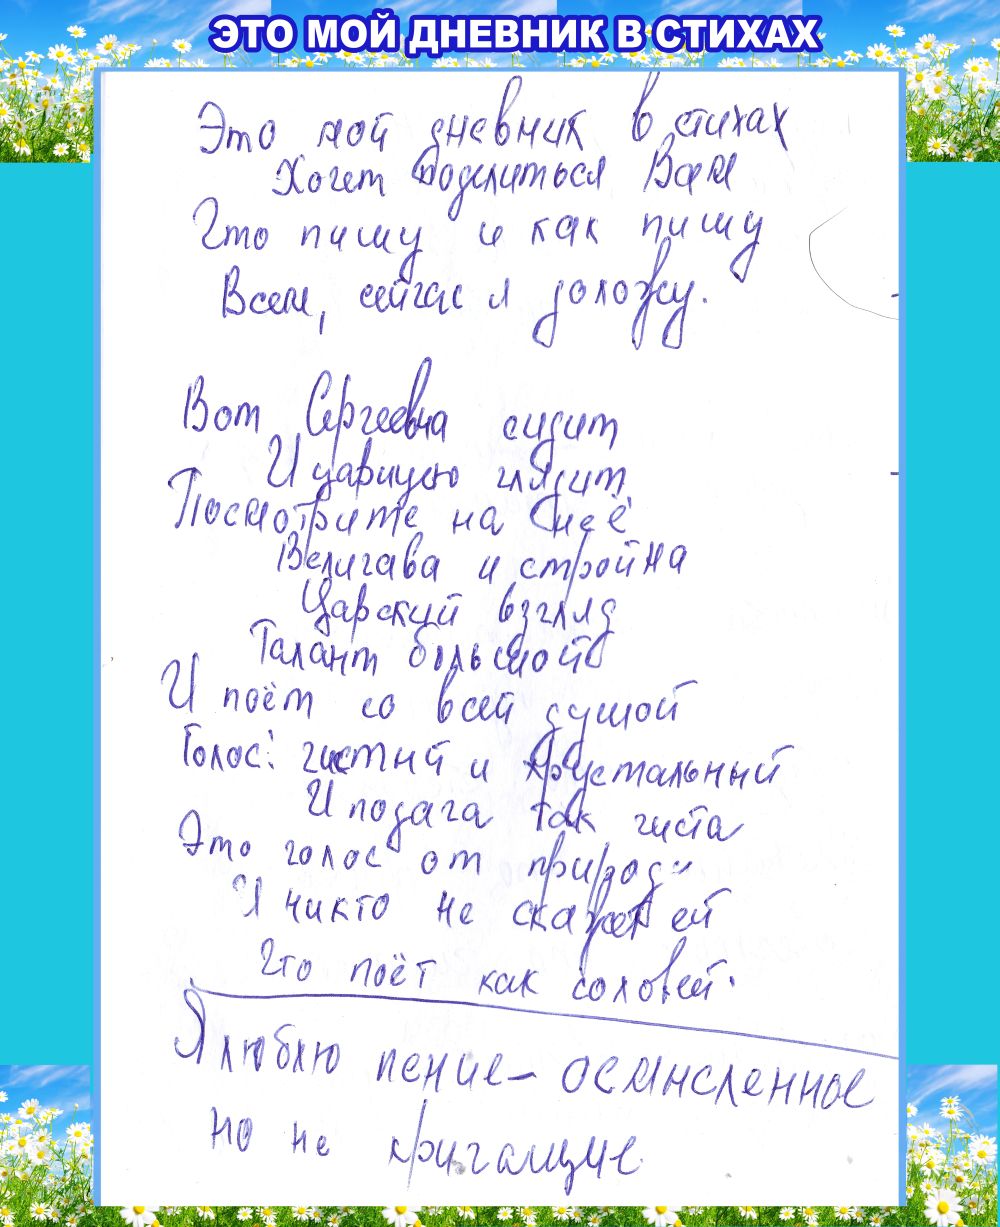 ЭТО МОЙ ДНЕВНИК В СТИХАХ
Это мой дневник в стихах
Хочет поделиться Вам
Что пишу и как пишу
Всем, сейчас я доложу.
Вот Сергеевна сидит
И царицею глядит
Посмотрите на неё
Величава и стройна
Царский взгляд
Талант большой
И поёт со всей душой
Голос: чистый и хрустальный
И подача так чиста
Это голос от природы
И никто не скажет ей
Что поёт как соловей.
Я люблю пение - осмысленное
но не кричащие